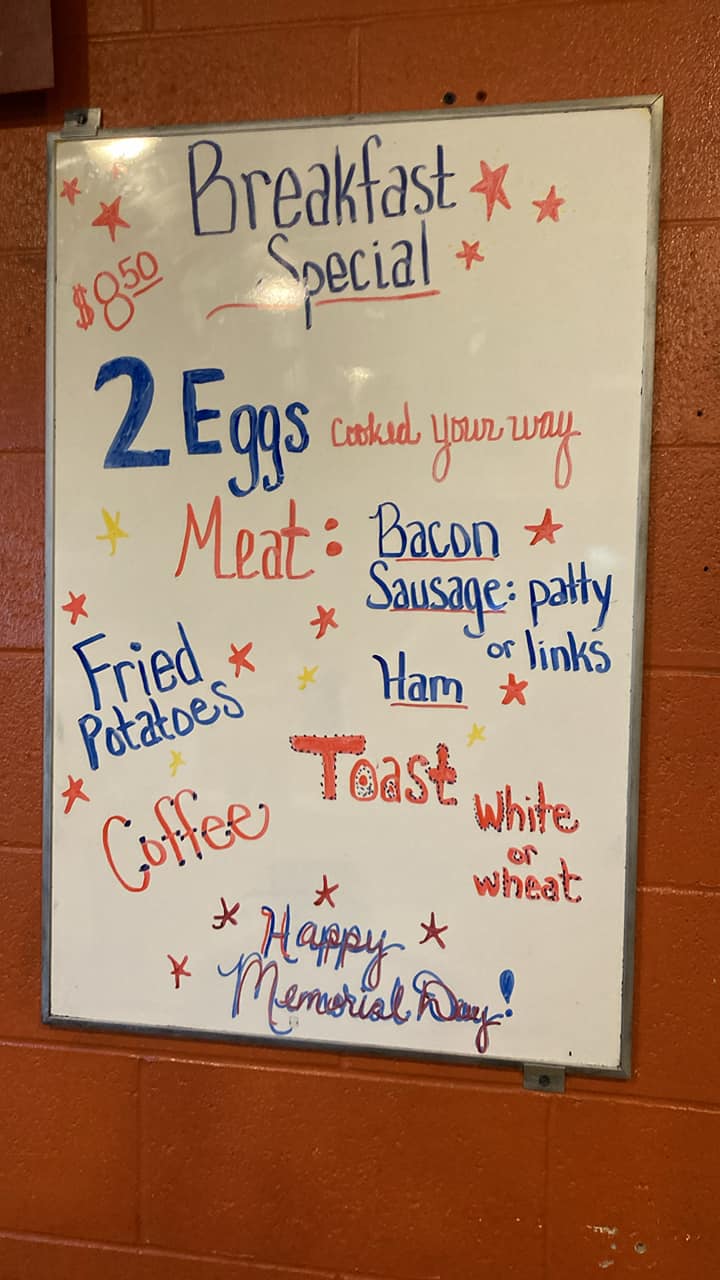 Breakfast
Special
$8.50
2 Eggs cooked your way
Meat: Bacon
Sausage: patty
or links
Ham
Fried
Potatoes
Toast
White
or
wheat
Coffee
Happy
Memorial Day!